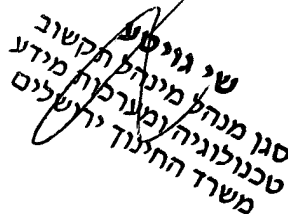 שי גויטע
סגן מנהל מינהל תקשוב
טכנולוגיה ומערכות מידע
משרד החינוך ירושלים